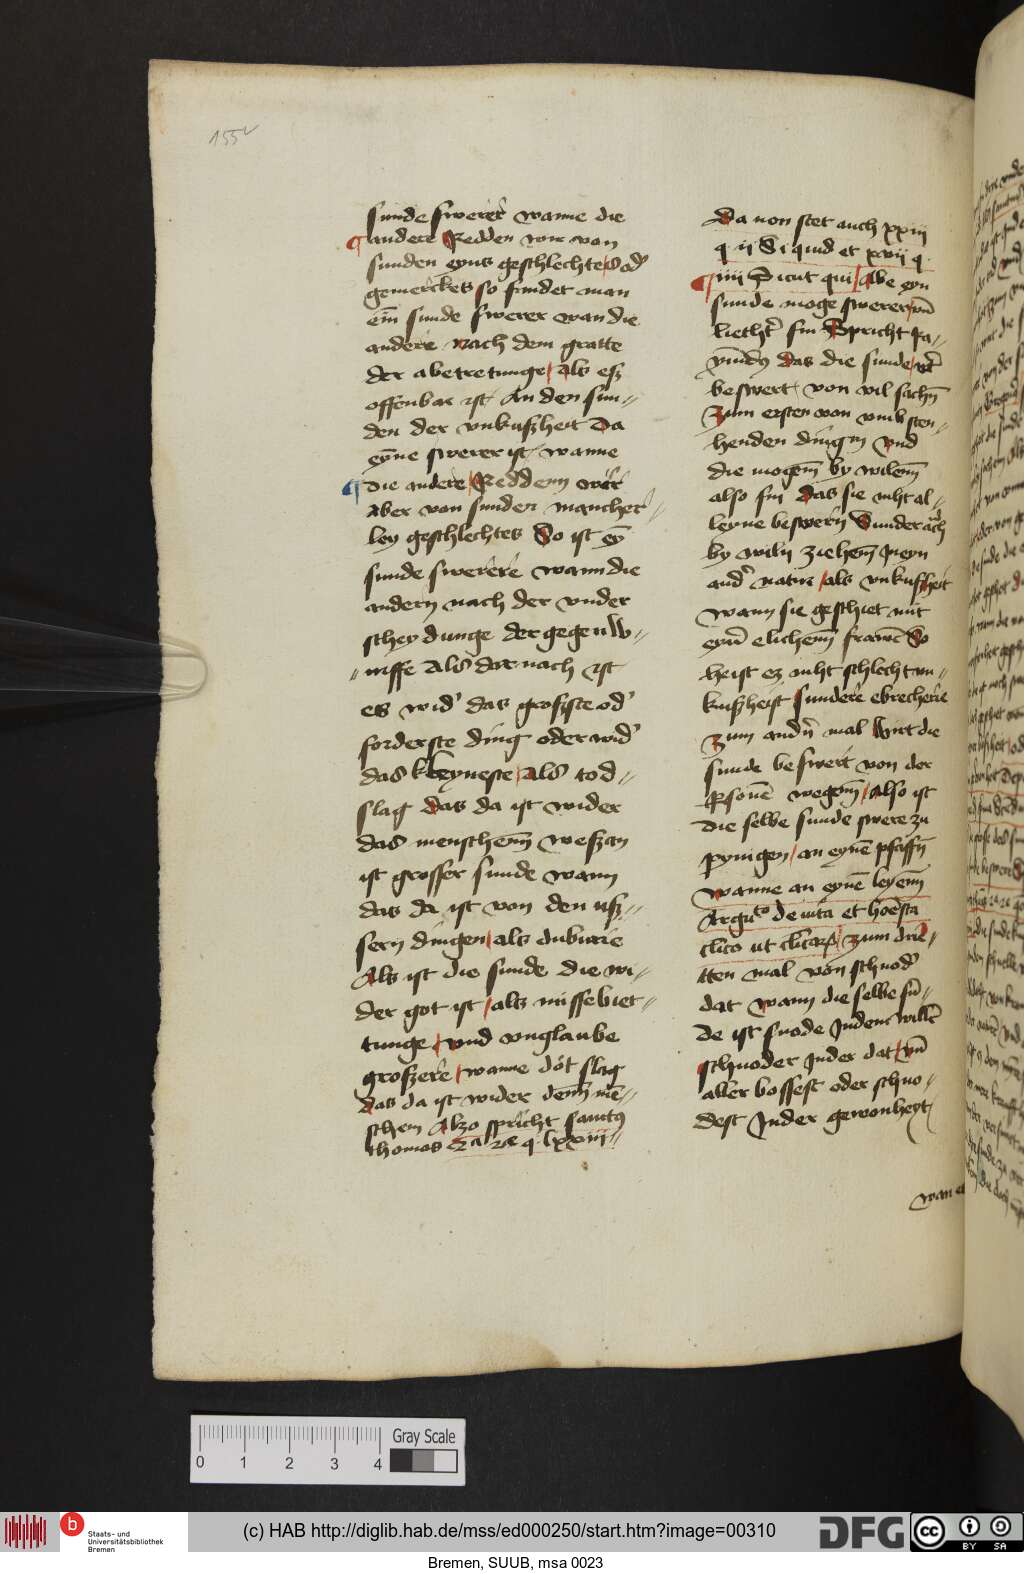 155v
sunde swerer wanne die
andere Redden wir von
sunden eyns geschlechtes od'
gemerckets so findet man
ein sunde swerer wan die
andere nach dem gratte
der abetretunge als esz
offenbar ist An den sun-
den der vnkuszheit Da
eyne swerer ist wanne
die andere Reddenn wir
aber von sunden mancher-
ley geschlechtes So ist ey
sunde swerere wann die
andern nach der vnder
scheydunge der gegen w-
urffe Als dar nach ist
es wid' das groszste od'
forderste ding oder wid'
das kleyneste Als tod-
slag das da ist wider
das menschenn weszan
ist grosser sunde wann
das da ist von den usz-
sern dingen als duburie
Als ist die sunde die wi-
der got ist als missebiet-
tunge vnd vnglaube
groszere wanne dot slag
das da ist wider denn me-
schen Alzo spricht sanctus
thomas 2a 2e q lxxiii
Da non stet auch xxiii
q ii Si quid et xxii q
iiii Sicut qui Abe eyn
sunde moge swerer vn
liethr sin Spricht Ra-
ymudus das die sunde wt
beswert von vil sachn
Zum ersten von vmb sten-
henden dingin vnd
die mogenn by wilenn
also sin das sie niht al-
leyne beswern Sunder auch
by wiln ziehenn in eyn
and' natur als vnkusheit
Wann sie geschiet mit
eynr elichenn frawe So
heist ez niht schlecht vn-
kuszheist sundere ebrecherie
Zum andn mal Wirt die
sunde beswert von der
psonē wegenn Also ist
die selbe sunde swere zu
pynigen an eynē pfaffn
wanne an eynē leyenn
Argu to de vita et honesta
clico ut clicorz zum drie-
tten mal von schnod'
dat wann die selbe su-
de ist snode Indem willē
schnoder Inder dat vn
aller bossest oder schno-
dest Inder gewonheyt
wan e
0 1 2 3 4
Gray Scale
b
Staats- und
Universitätsbibliothek
Bremen
(c) HAB http://diglib.hab.de/mss/ed000250/start.htm?image=00310
DFG
CC BY SA
Bremen, SUUB, msa 0023